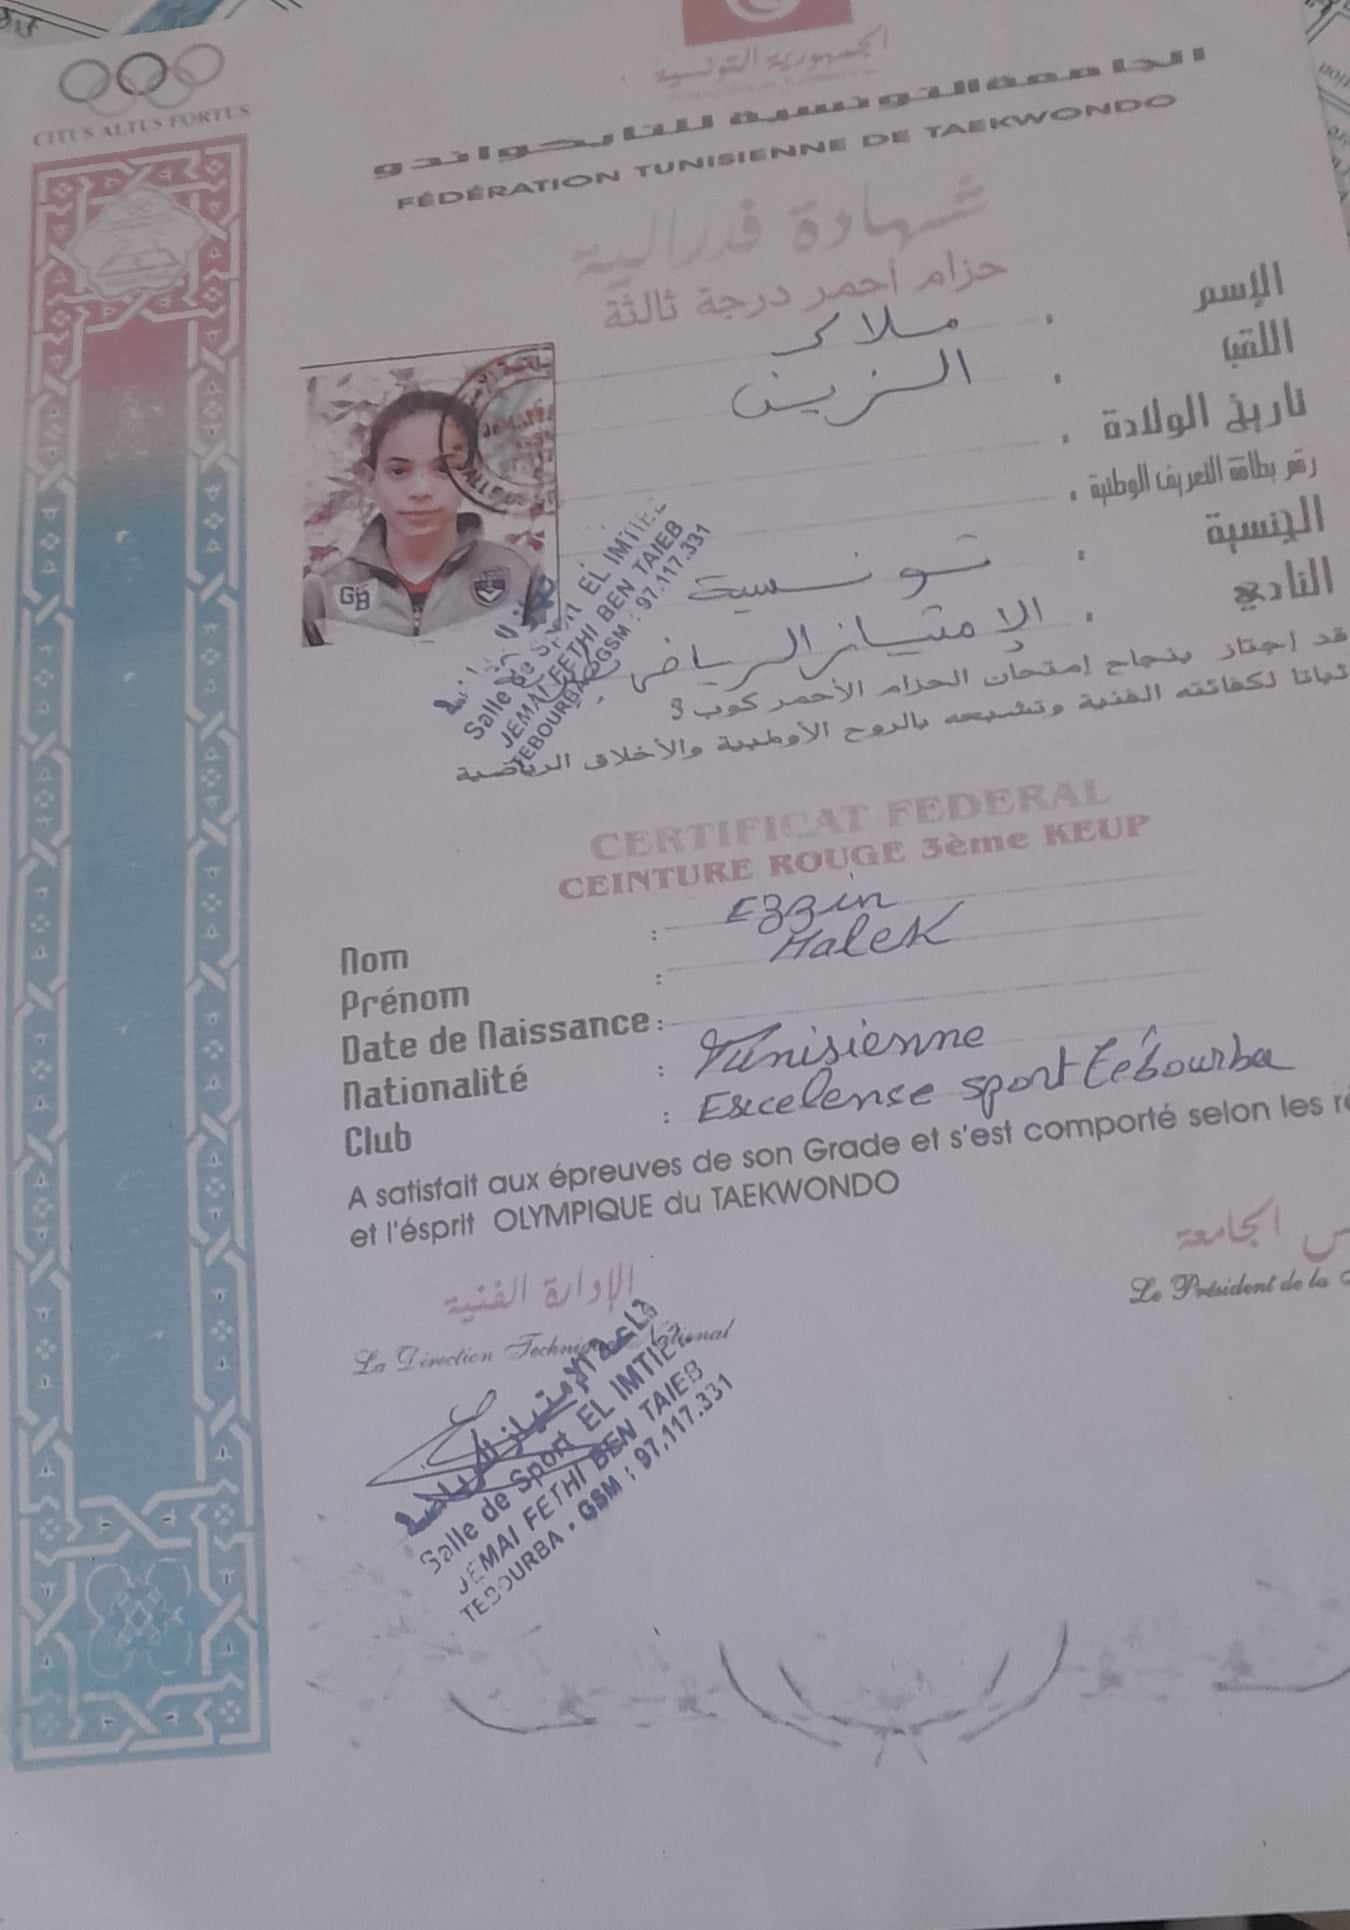 CITUS ALTUS FORTUS
الجمهورية التونسية
الجامعة التونسية للتايكواندو
FÉDÉRATION TUNISIENNE DE TAEKWONDO
شهادة فدرالية
حزام أحمر درجة ثالثة
الإسم : ملاك
اللقب : الزين
تاريخ الولادة :
رقم بطاقة التعريف الوطنية :
الجنسية : تونسية
النادي : الإمتياز الرياضي
قد إجتاز بنجاح إمتحان الحزام الأحمر كوب 3
لكفائته الفنية وتشبعه بالروح الأولمبية والأخلاق الرياضية
GB
Salle de Sport EL IMTIEZ
JEMAI FETHI BEN TAIEB
TEBOURBA GSM : 97.117.331
CERTIFICAT FEDERAL
CEINTURE ROUGE 3ème KEUP
Nom : Ezzin
Prénom : Malek
Date de Naissance :
Nationalité : Tunisienne
Club : Excelense sport tébourba
A satisfait aux épreuves de son Grade et s'est comporté selon les
et l'ésprit OLYMPIQUE du TAEKWONDO
الإدارة الفنية
الجامعة
La Direction Technique National
Le Président de la
قاعة الإمتياز الرياضية
Salle de Sport EL IMTIEZ
JEMAI FETHI BEN TAIEB
TEBOURBA - GSM : 97.117.331